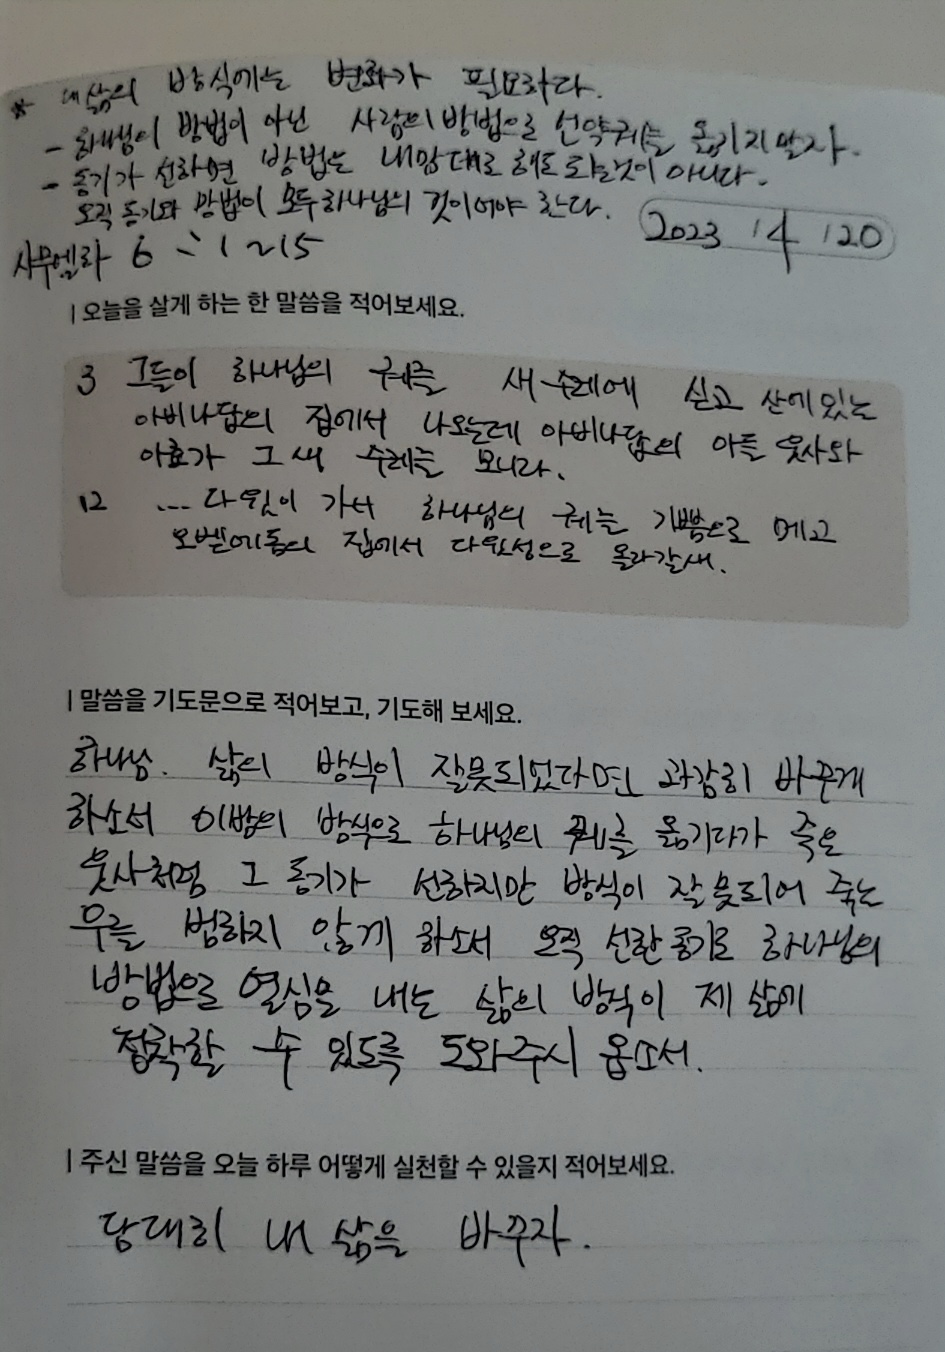 * 내 삶의 방식에는 변화가 필요하다.
- 하나님이 방법이 아닌 사람의 방법으로 언약궤를 옮기지 말자.
- 동기가 선하면 방법은 내맘대로 해도 되는것이 아니다.
오직 동기와 방법이 모두 하나님의 것이어야 한다.
2023 / 4 / 20
사무엘하 6 : 1 ~ 15
| 오늘을 살게 하는 한 말씀을 적어보세요.
3 그들이 하나님의 궤를 새 수레에 싣고 산에 있는
아비나답의 집에서 나오는데 아비나답의 아들 웃사와
아효가 그 새 수레를 모니라.
12 ... 다윗이 가서 하나님의 궤를 기쁨으로 메고
오벧에돔의 집에서 다윗성으로 올라갈새.
| 말씀을 기도문으로 적어보고, 기도해 보세요.
하나님. 삶의 방식이 잘못되었다면 과감히 바꾸게
하소서 이방의 방식으로 하나님의 궤를 옮기다가 죽은
웃사처럼 그 동기가 선하지만 방식이 잘못되어 죽는
우를 범하지 않게 하소서 오직 선한 동기로 하나님의
방법으로 열심을 내는 삶의 방식이 제 삶에
정착할 수 있도록 도와주시옵소서.
| 주신 말씀을 오늘 하루 어떻게 실천할 수 있을지 적어보세요.
담대히 내 삶을 바꾸자.